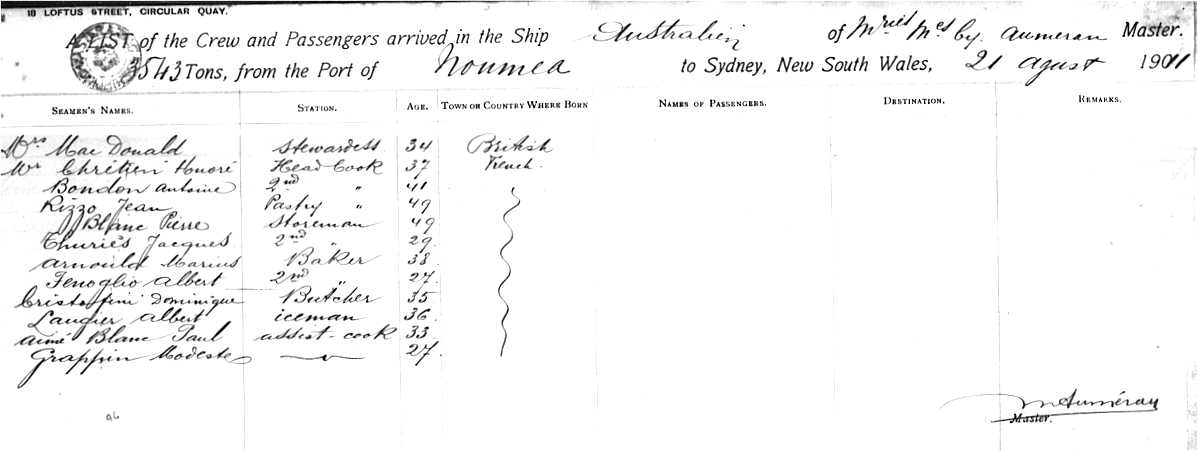 18 LOFTUS STREET, CIRCULAR QUAY.
A LIST of the Crew and Passengers arrived in the Ship Australien of Mrıes Mes by. Aumeran Master.
3543 Tons, from the Port of Noumea to Sydney, New South Wales, 21 agust 1901
SEAMEN'S NAMES. STATION. AGE. TOWN OR COUNTRY WHERE BORN NAMES OF PASSENGERS. DESTINATION. REMARKS.
Mrs Mac Donald Stewardess 34 British
Mr Chrétien Honoré Head Cook 37 French
Bondon Antoine 2nd " 41
Rizzo Jean Pastry " 49
Blanc Pierre Storeman 49
Thuriés Jacques 2nd " 29
Arnould Marius Baker 38
Fenoglio Albert 2nd " 27
Cristofini Dominique Butcher 35
Laugier Albert iceman 36
aimé Blanc Paul assist-cook 33
Grappin Modeste 27
96
Aumeran
Master.